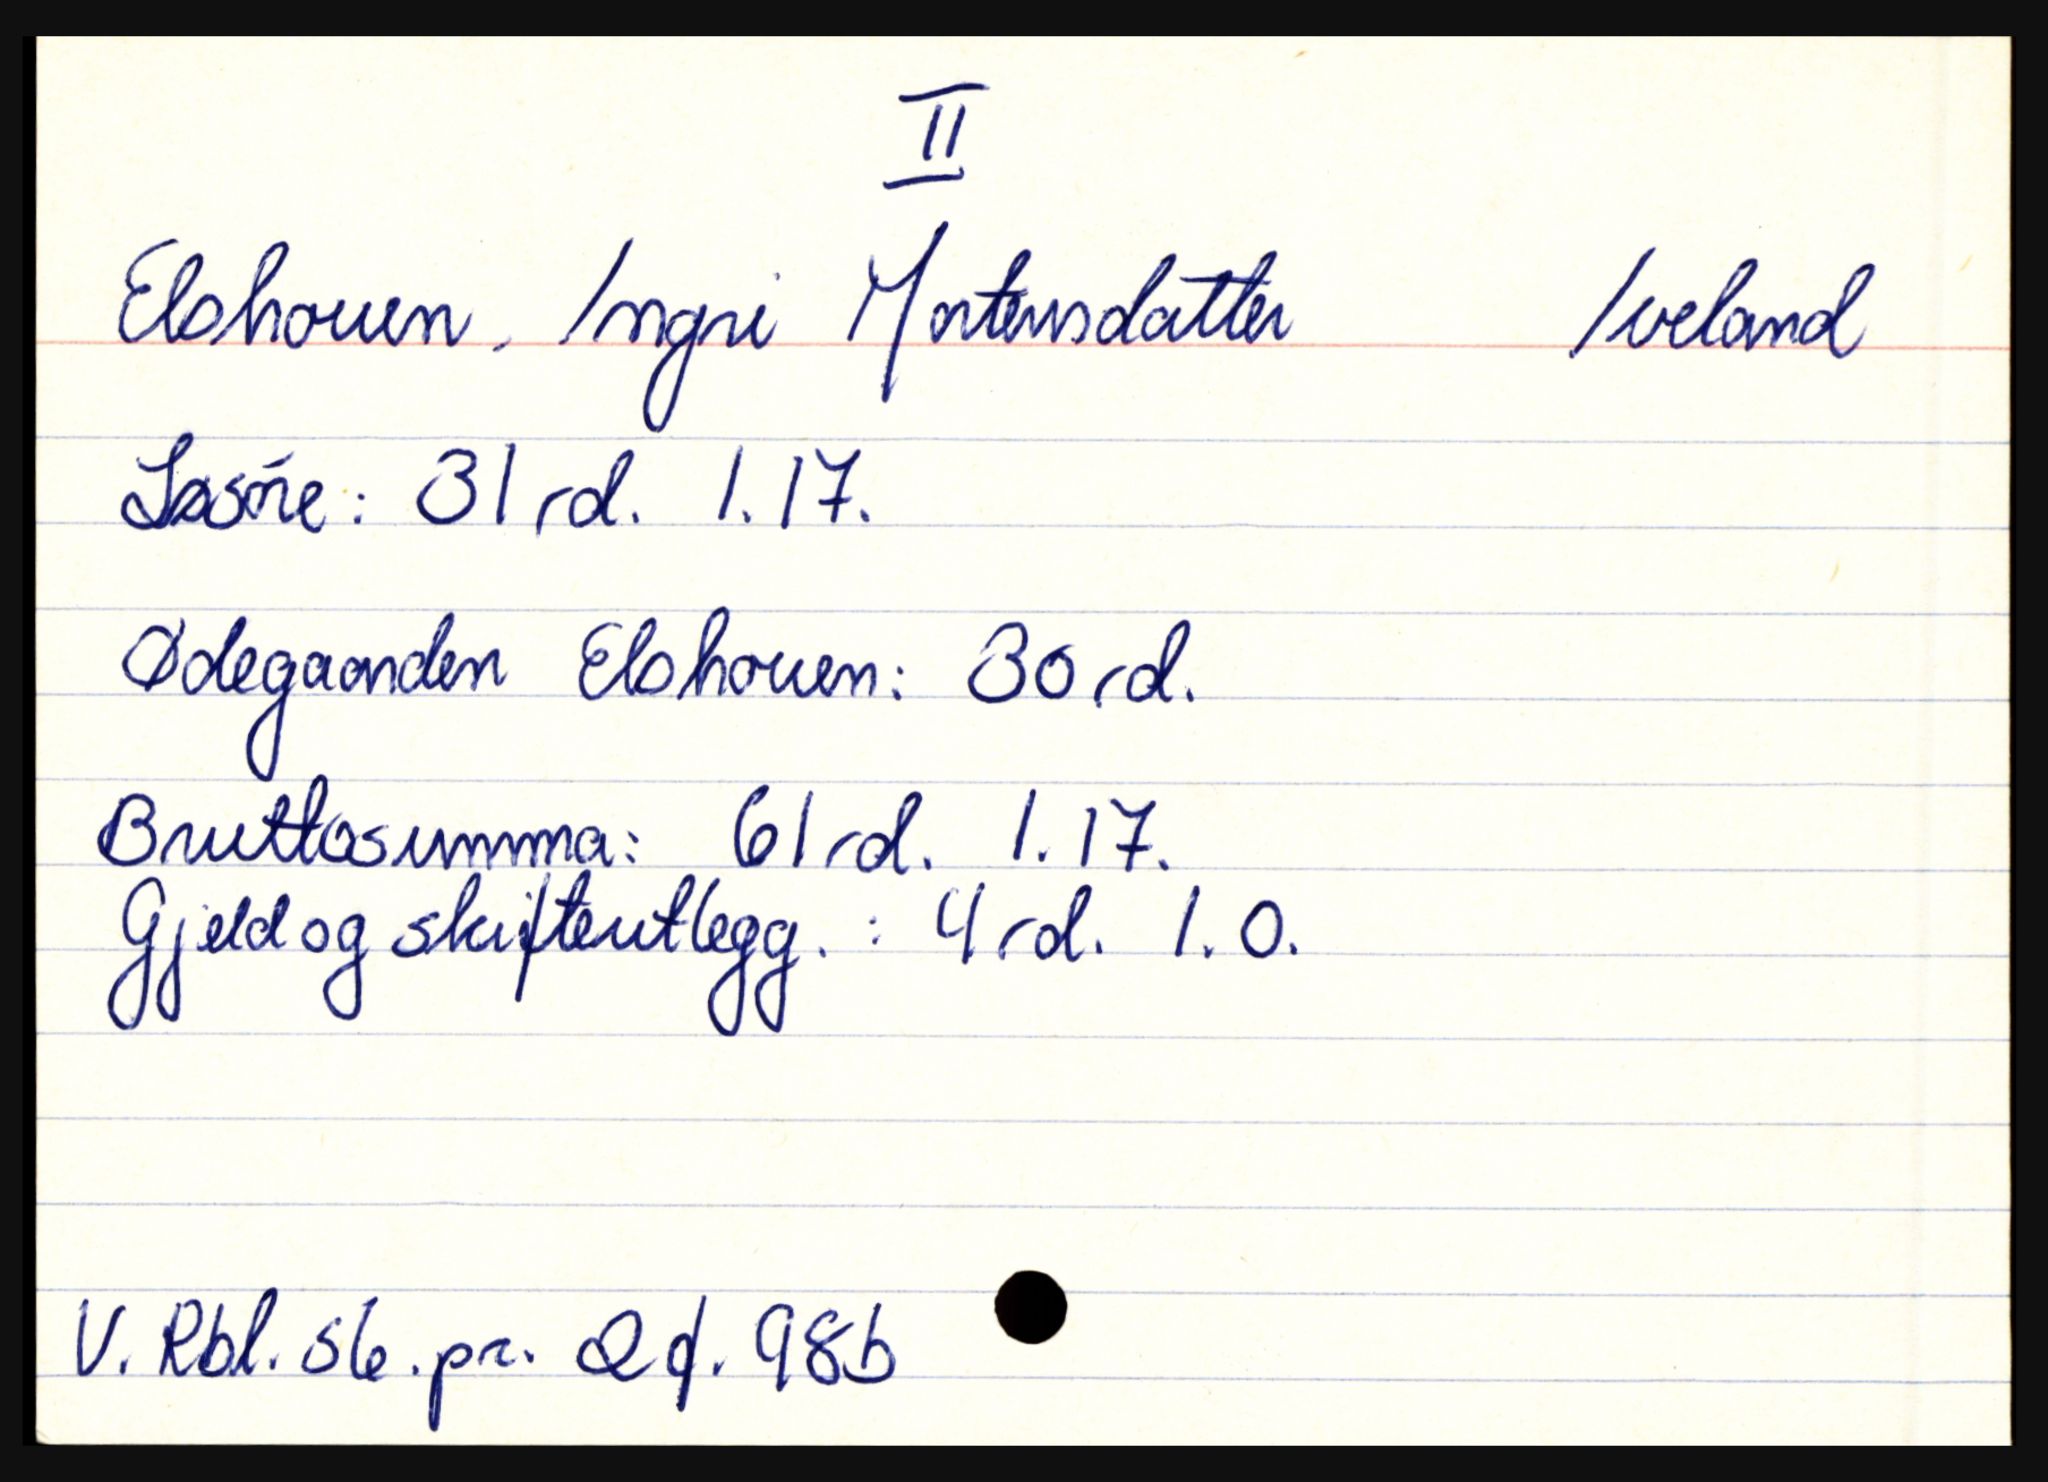 II
Elshouen, Ingri Mortensdatter Iveland
Løsøre: 31 rd. 1.17.
Ødegaarden Elshouen: 30 rd.
Bruttosumma: 61 rd. 1.17.
Gjeld og skifteutlegg. : 4 rd. 1.0.
V. Rbl. sk. pr. 2 f. 98b